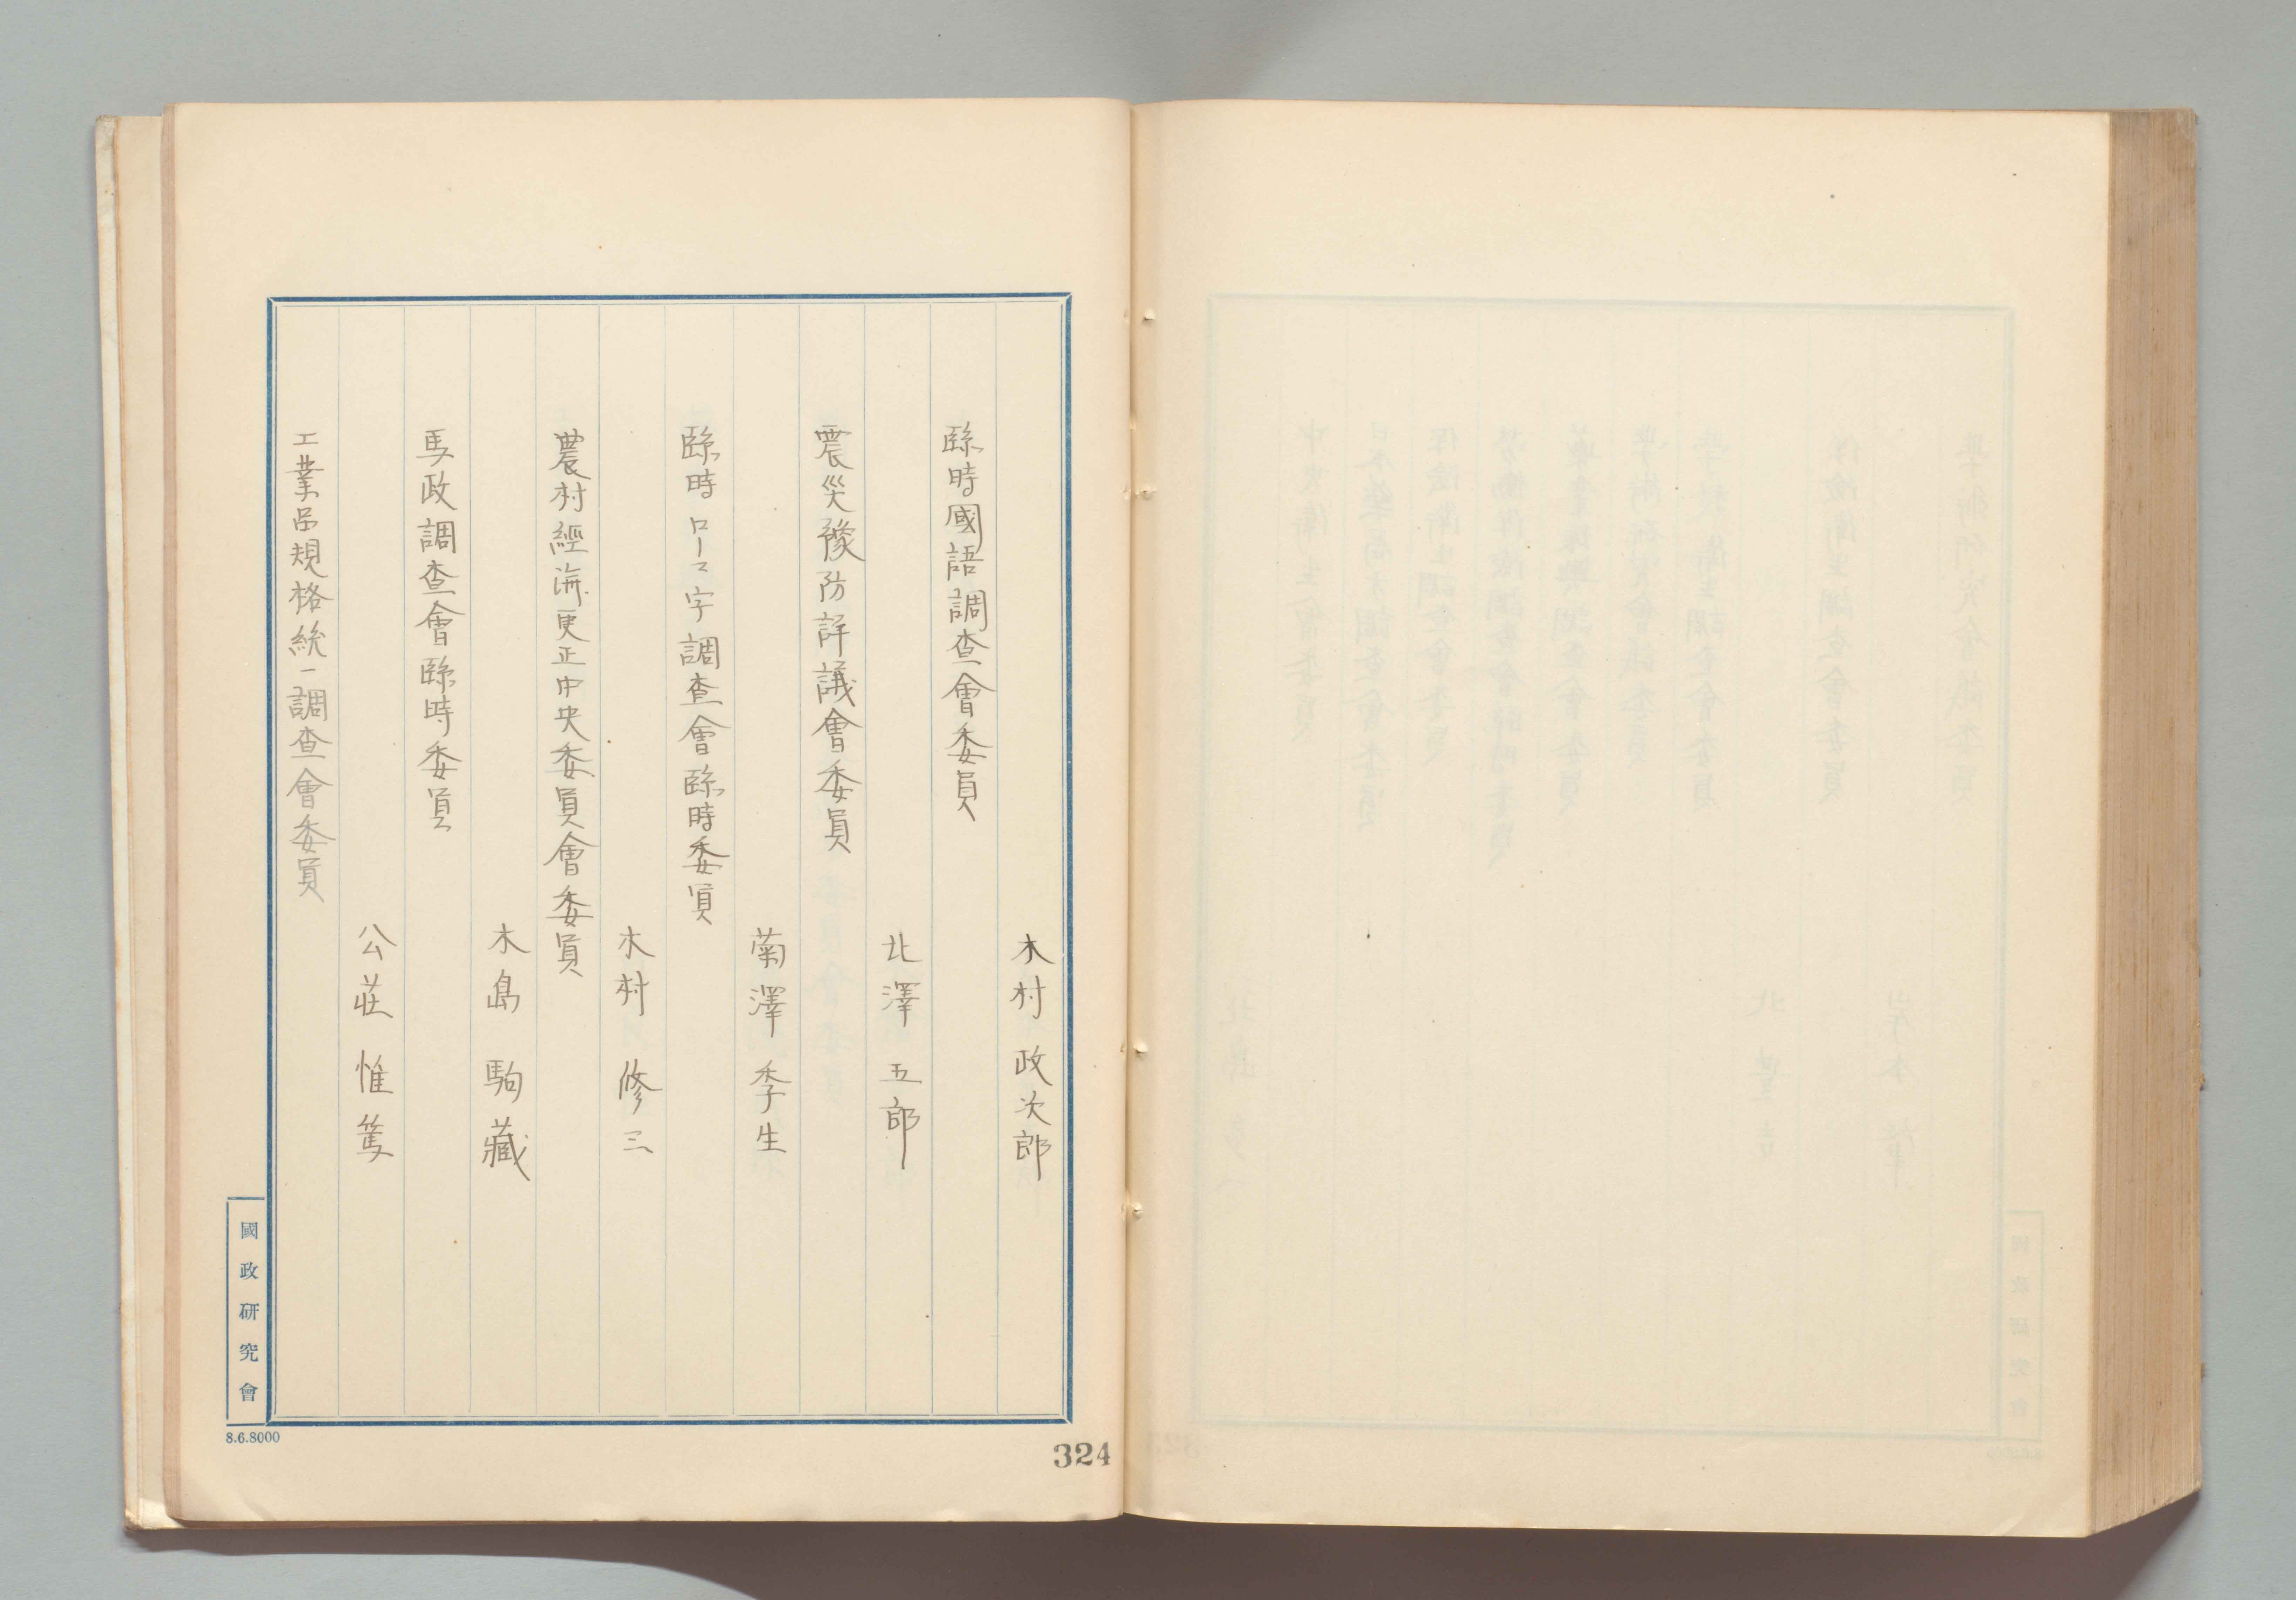 木村政次郎
臨時國語調査會委員
北澤五郎
震災豫防評議會委員
菊澤季生
臨時ローマ字調査會臨時委員
木村修三
農村經濟更正中央委員會委員
木島駒藏
馬政調査會臨時委員
公莊惟篤
工業品規格統一調査會委員
國政研究會
8.6.8000
324